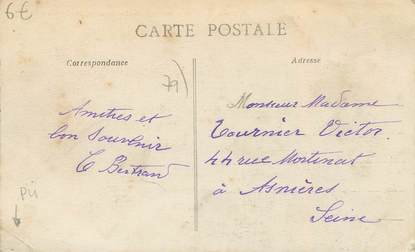 6€
CARTE POSTALE
Correspondance
Adresse
79
Amitiés et
bon Souvenir
E Bertrand
Monsieur Madame
Tournier Victor.
44 rue Mortinat
à Asnières
Seine